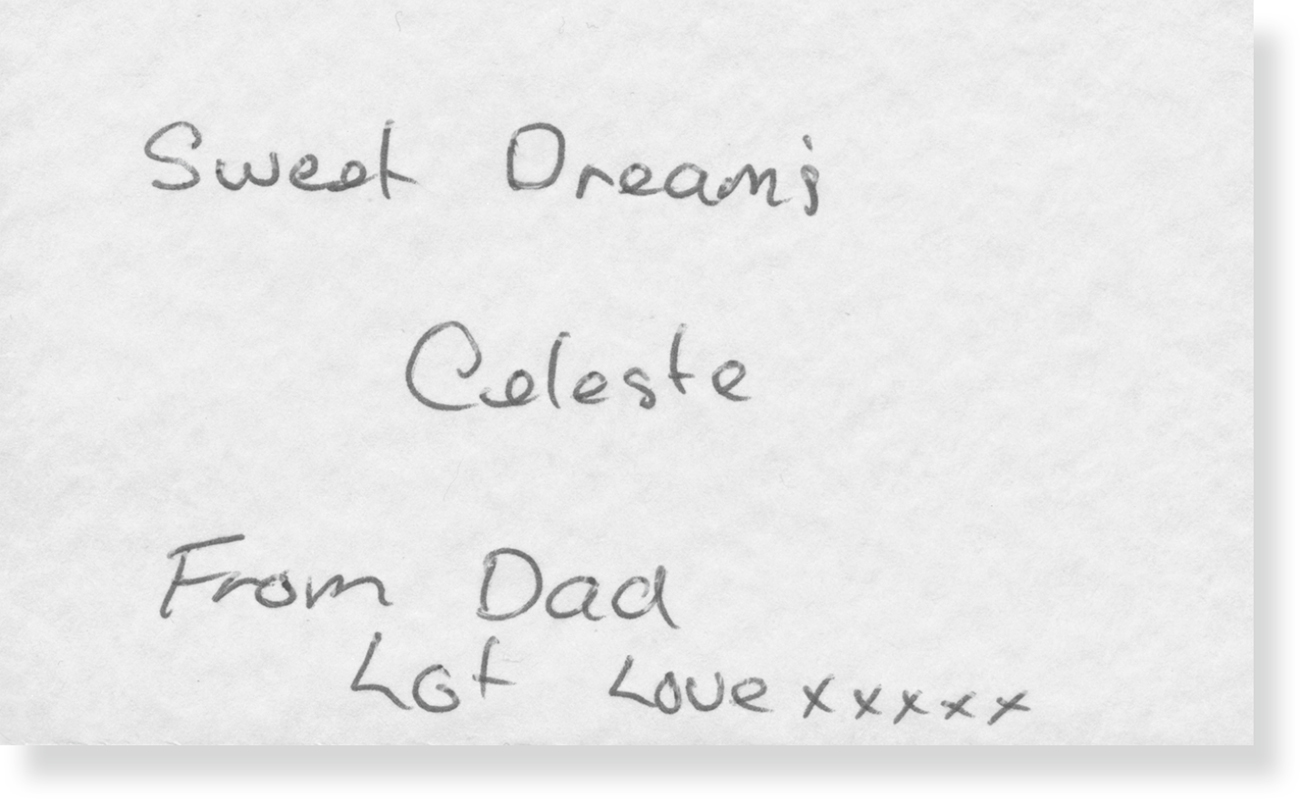 Sweet Dreams
Celeste
From Dad
Lot Love xxxxx